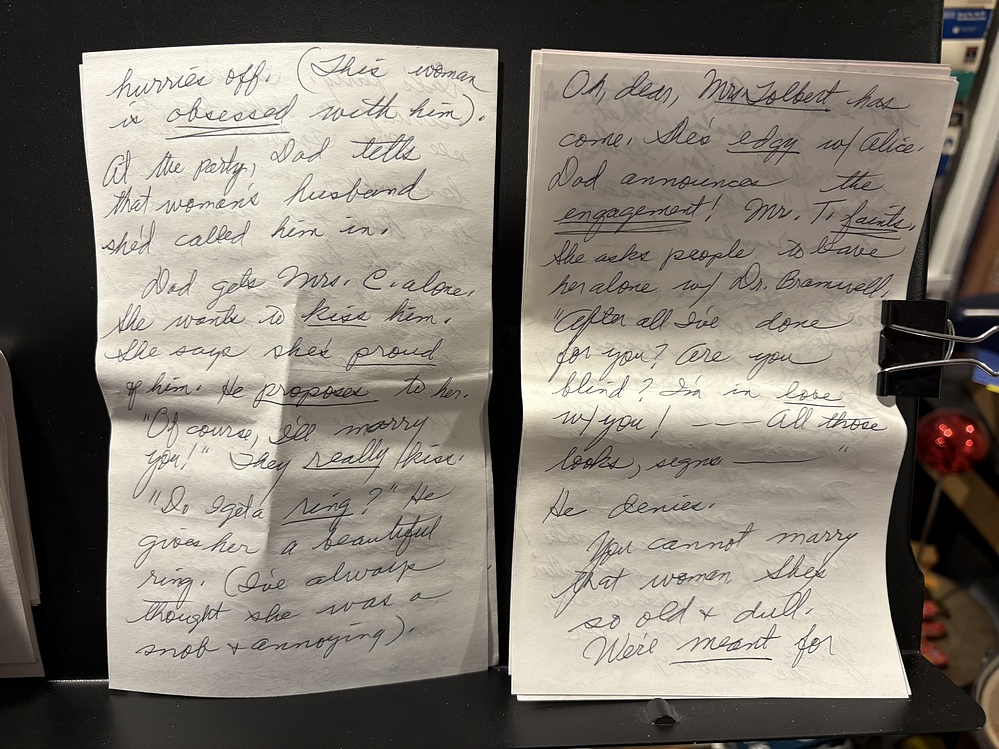 hurries off. (This woman
is obsessed with him).
At the party, Dad tells
that woman's husband
she'd called him in.
Dad gets Mrs. C. alone.
She wants to kiss him.
She says she's proud
of him. He proposes to her.
"Of course, I'll marry
you!" They really kiss.
"Do I get a ring?" He
gives her a beautiful
ring. (I've always
thought she was a
snob + annoying).
Oh, dear, Mrs Tolbert has
come. She's edgy w/ Alice.
Dad announces the
engagement! Mr. T. faints.
She asks people to leave
her alone w/ Dr. Bramwell.
"After all I've done
for you? Are you
blind? I'm in love
w/ you! —— All those
looks, signs —— "
He denies.
You cannot marry
that woman. She's
so old + dull.
We're meant for